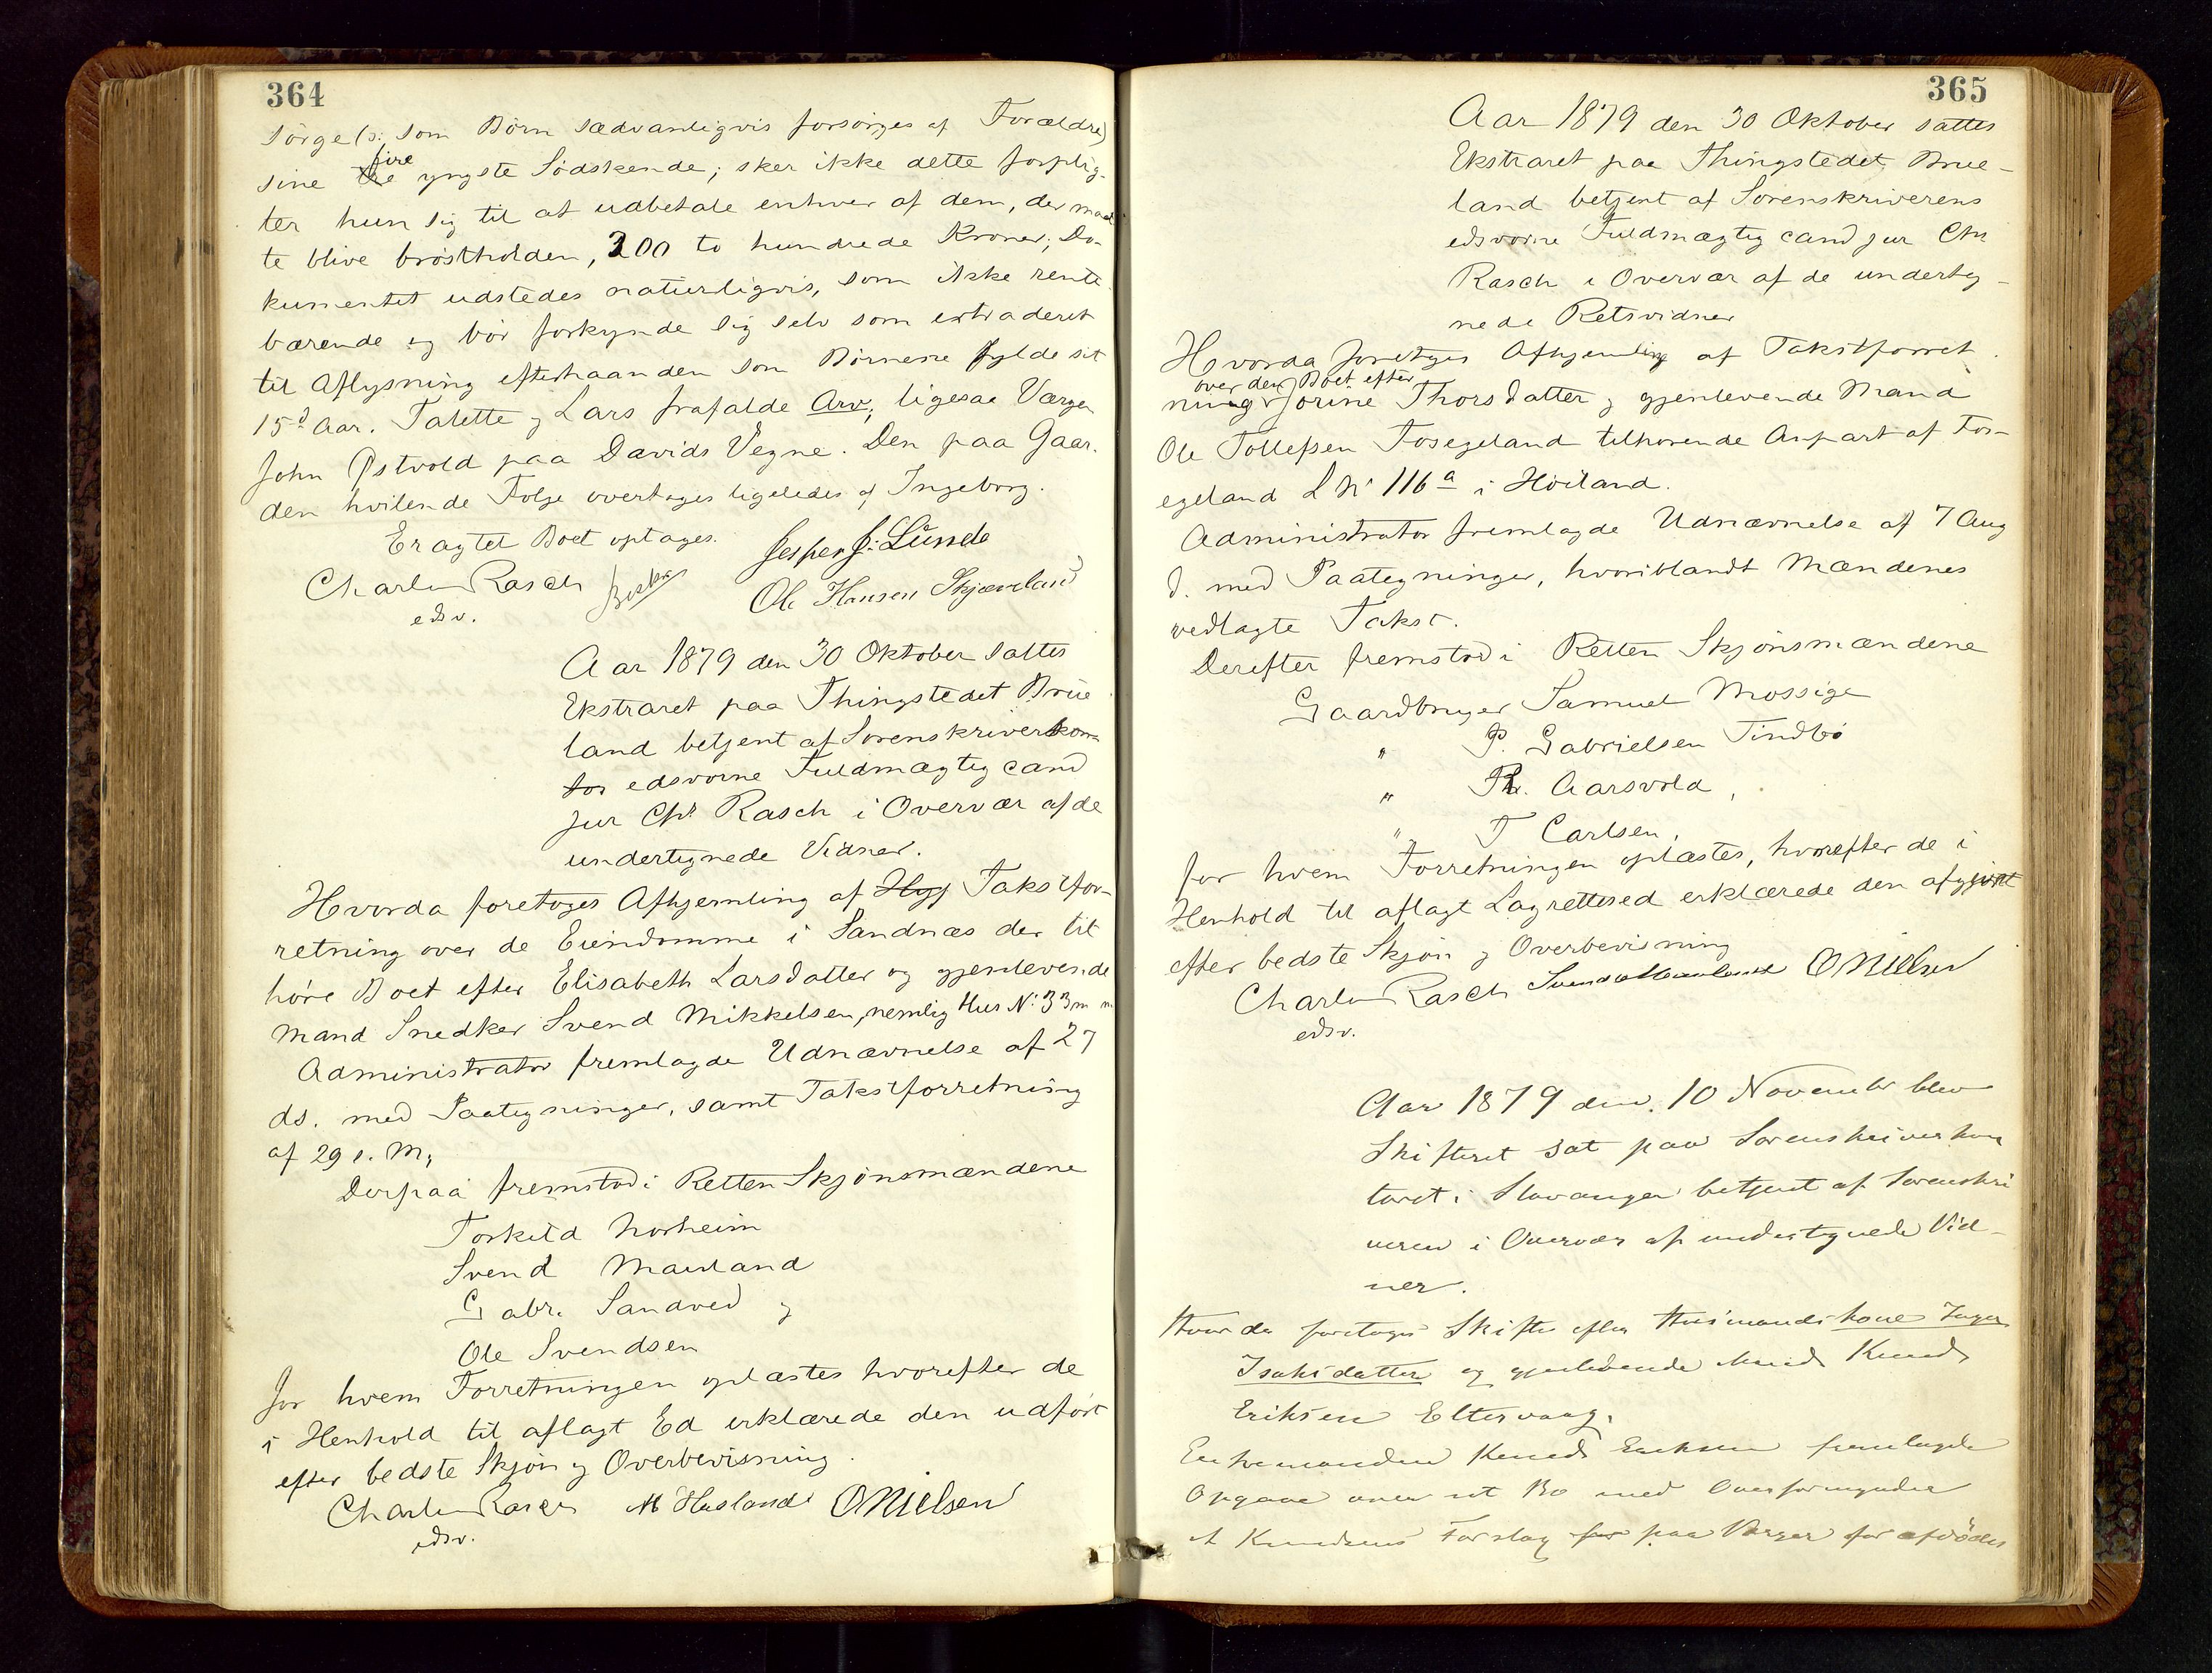 364
sørge (ɔ: som Børn sædvanligvis forsørges af Forældre)
sine fire yngste Sødskende; sker ikke dette forplig-
ter hun sig til at udbetale enhver af dem, der maat
te blive brøstholden, 200 to hundrede Kroner; Do-
kumentet udstedes naturligvis, som ikke rente
bærende og bør forkynde sig selv som extraderet
til Aflysning efterhaanden som Børnene fylde sit
15d Aar. Talette og Lars frafalde Arv; ligesaa Værgen
John Østvold paa Davids Vegne. Den paa Gaar-
den hvilende Følge overtages ligeledes af Ingeborg.
Eragtet Boet optages.
Jesper J: Lunde
Charles Rasch
edsv.
Ole Hansen Skjæveland
Aar 1879 den 30 Oktober sattes
Ekstraret paa Thingstedet Brue
land betjent af Sorenskriverkon-
tor edsvorne Fuldmægtig cand
jur Chs Rasch i Overvær af de
undertegnede Vidner.
Hvorda foretoges Afhjemling af Hyp Takstfor-
retning over de Eiendomme i Sandnæs der til
høre Boet efter Elisabeth Larsdatter og gjenlevende
Mand Snedker Svend Mikkelsen, nemlig Hus No 33 m m
Administrator fremlagde Udnævnelse af 27
ds. med Paategninger, samt Takstforretning
af 29 s. M;
Derpaa fremstod i Retten Skjønsmændene
Torkild Norheim
Svend Mauland
Gabr. Sandved og
Ole Svendsen
for hvem Forretningen oplæstes hvorefter de
i Henhold til aflagt Ed erklærede den udført
efter bedste Skjøn og Overbevisning.
Charles Rasch M Husland ONielsen
edsv.
365
Aar 1879 den 30 Oktober sattes
Ekstraret paa Thingstedet Brue-
land betjent af Sorenskriverens
edsvorne Fuldmægtig cand jur Chs
Rasch i Overvær af de underteg-
nede Retsvidner
Hvorda foretoges Afhjemling af Takstforret
ning over den Boet efter Jorine Thorsdatter og gjenlevende Mand
Ole Tollefsen Fosegeland tilhørende Anpart af Fos-
egeland L No 116a i Høiland.
Administrator fremlagde Udnævnelse af 7 Aug
d. med Paategninger, hvoriblandt Mændenes
vedlagte Takst.
Derefter fremstod i Retten Skjønsmændene
Gaardbruger Samuel Mossige
" P. Gabrielsen Tindbø
" R. Aarsvold,
" T Carlsen,
for hvem Forretningen oplæstes, hvorefter de i
Henhold til aflagt Lagretteed erklærede den afgivet
efter bedste Skjøn og Overbevisning
Charles Rasch Svend Mauland ONielsen
edsv.
Aar 1879 den 10 November blev
Skifteret sat paa Sorenskriverkon
toret i Stavanger betjent af Sorenskri
veren i Overvær af undertegnede Vid-
ner.
Hvorda foretoges Skifte efter Huusmandskone Inger
Isaksdatter og gjenlevende Mand Knud
Eriksen Eltervaag.
Enkemanden Knud Eriksen fremlagde
Opgave over sit Bo med Overformynder
A Knudsens Forslag for paa Værger for afdødes